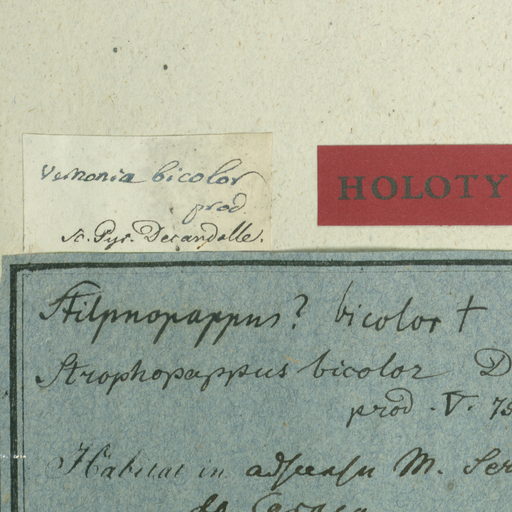 Vernonia bicolor
prod
Sc. Pyr. Decandolle.
HOLOTY
Stilpnopappus? bicolor †
Strophopappus bicolor D
prod. V. 75
Habitat in adscensu M. Ser